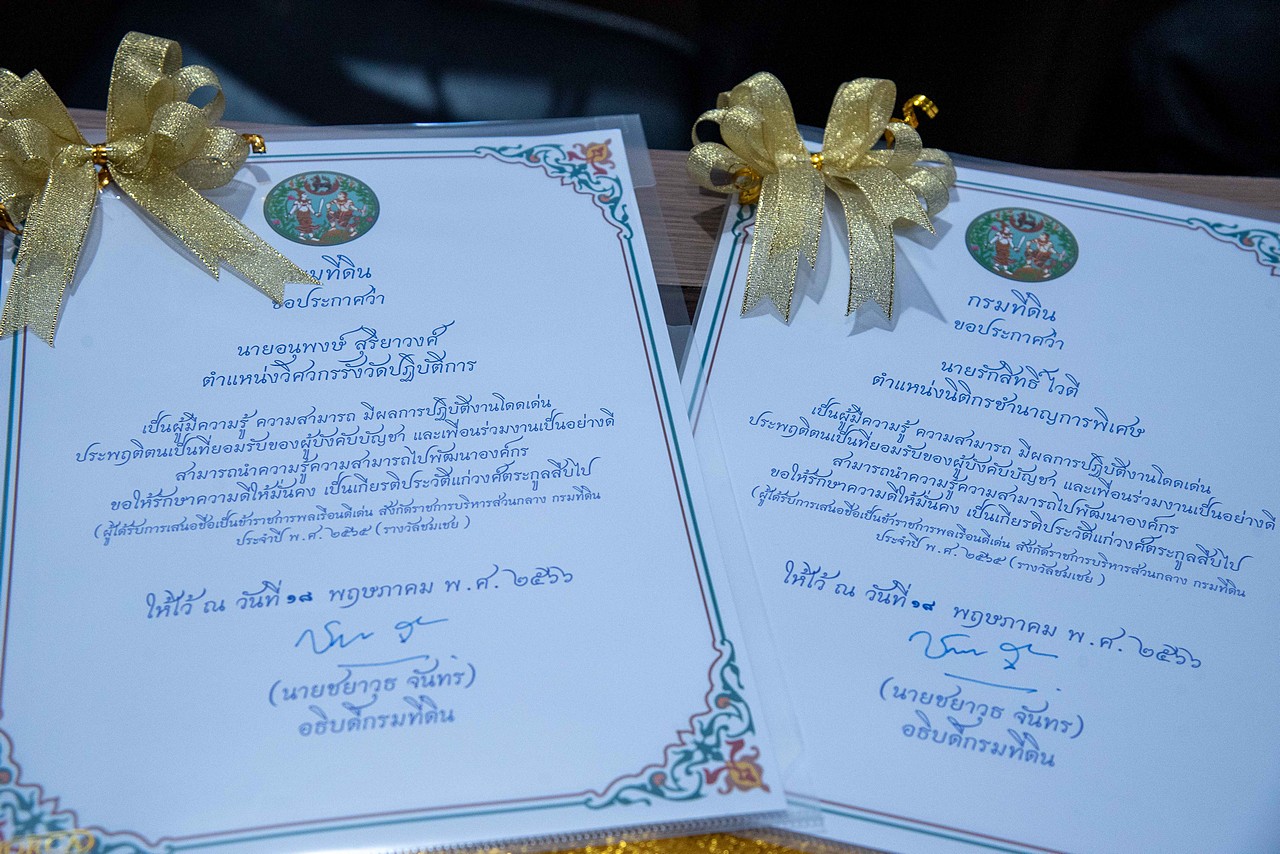 กรมที่ดิน
ขอประกาศว่า
นายอนุพงษ์ สุริยาวงค์
ตำแหน่งวิศวกรรังวัดปฏิบัติการ
เป็นผู้มีความรู้ ความสามารถ มีผลการปฏิบัติงานโดดเด่น
ประพฤติตนเป็นที่ยอมรับของผู้บังคับบัญชา และเพื่อนร่วมงานเป็นอย่างดี
สามารถนำความรู้ความสามารถไปพัฒนาองค์กร
ขอให้รักษาความดีให้มั่นคง เป็นเกียรติประวัติแก่วงศ์ตระกูลสืบไป
(ผู้ได้รับการเสนอชื่อเป็นข้าราชการพลเรือนดีเด่น สังกัดราชการบริหารส่วนกลาง กรมที่ดิน
ประจำปี พ.ศ. ๒๕๖๕ (รางวัลชมเชย)
ให้ไว้ ณ วันที่ ๑๘ พฤษภาคม พ.ศ. ๒๕๖๖
(นายชยาวุธ จันทร)
อธิบดีกรมที่ดิน
กรมที่ดิน
ขอประกาศว่า
นายรักสิทธิ์ ไวตี
ตำแหน่งนิติกรชำนาญการพิเศษ
เป็นผู้มีความรู้ ความสามารถ มีผลการปฏิบัติงานโดดเด่น
ประพฤติตนเป็นที่ยอมรับของผู้บังคับบัญชา และเพื่อนร่วมงานเป็นอย่างดี
สามารถนำความรู้ความสามารถไปพัฒนาองค์กร
ขอให้รักษาความดีให้มั่นคง เป็นเกียรติประวัติแก่วงศ์ตระกูลสืบไป
(ผู้ได้รับการเสนอชื่อเป็นข้าราชการพลเรือนดีเด่น สังกัดราชการบริหารส่วนกลาง กรมที่ดิน
ประจำปี พ.ศ. ๒๕๖๕ (รางวัลชมเชย)
ให้ไว้ ณ วันที่ ๑๘ พฤษภาคม พ.ศ. ๒๕๖๖
(นายชยาวุธ จันทร)
อธิบดีกรมที่ดิน